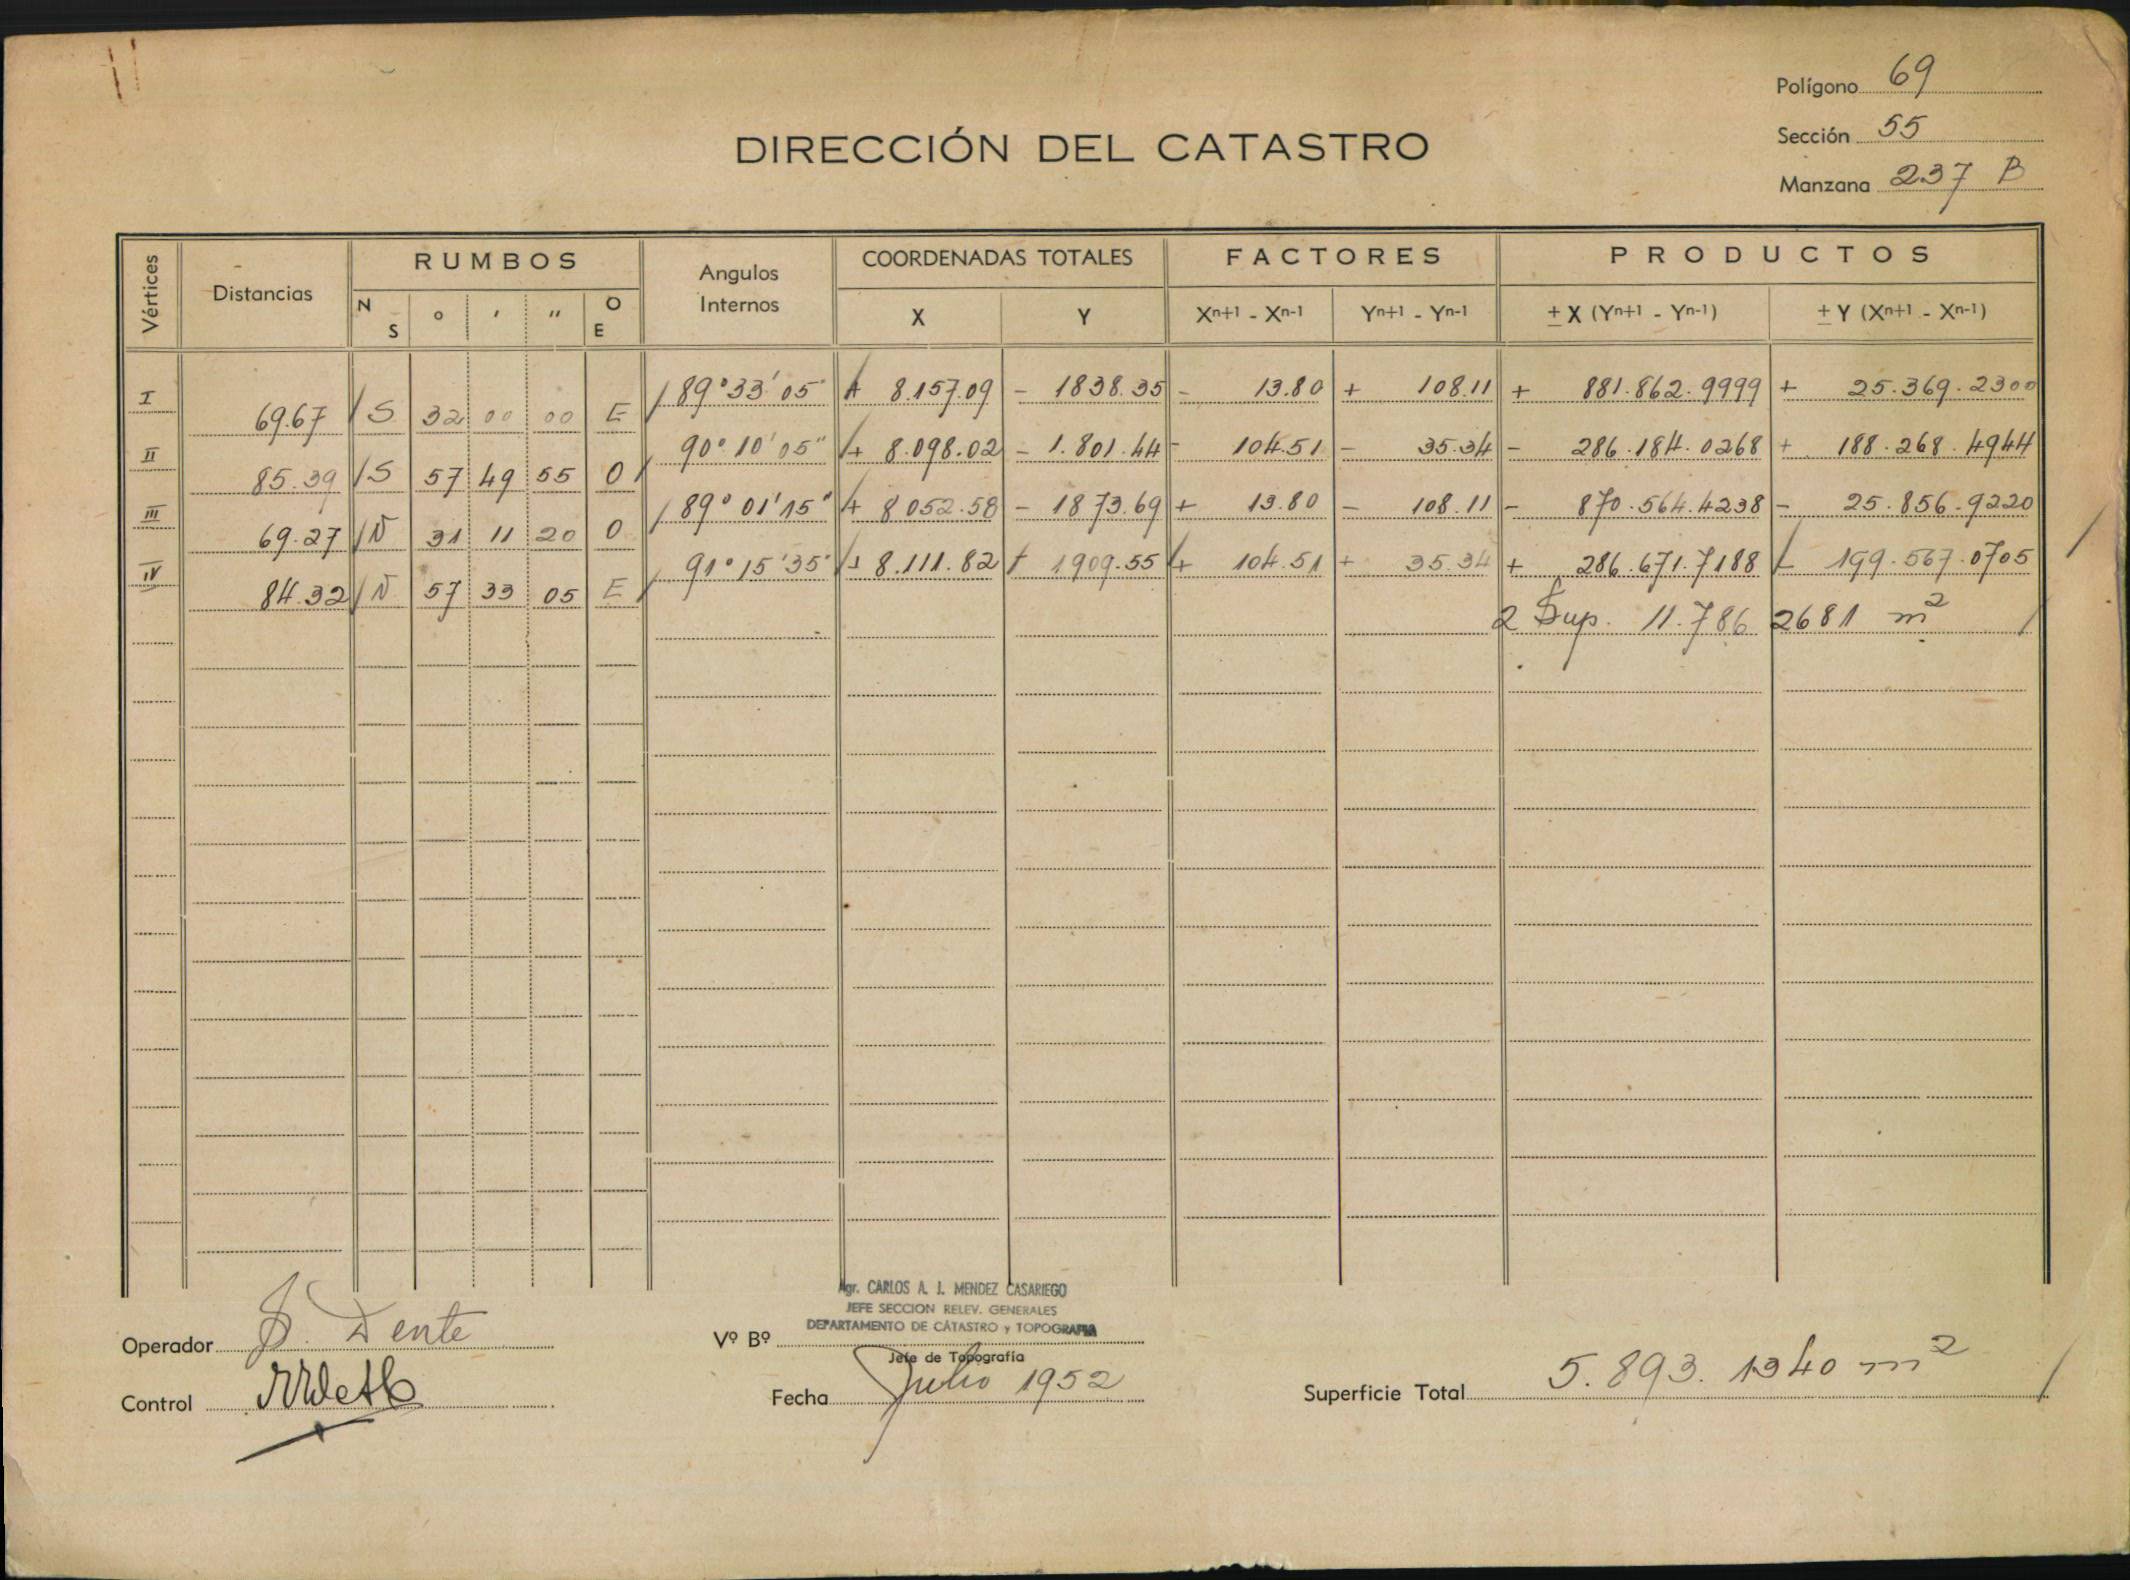 Polígono 69
DIRECCIÓN DEL CATASTRO
Sección 55
Manzana 237 B
Vértices Distancias RUMBOS Angulos Internos COORDENADAS TOTALES FACTORES PRODUCTOS
N S ° ' " O E X Y Xn+1 - Xn-1 Yn+1 - Yn-1 ± X (Yn+1 - Yn-1) ± Y (Xn+1 - Xn-1)
I 89°33'05" + 8.157.09 - 1838.35 - 13.80 + 108.11 + 881.862.9999 + 25.369.2300
69.67 S 32 00 00 E
II 90°10'05" + 8.098.02 - 1.801.44 - 104.51 - 35.34 - 286.184.0268 + 188.268.4944
85.39 S 57 49 55 O
III 89°01'15" + 8052.58 - 1873.69 + 13.80 - 108.11 - 870.564.4238 - 25.856.9220
69.27 N 31 11 20 O
IV 91°15'35" + 8.111.82 - 1909.55 + 104.51 + 35.34 + 286.671.7188 - 199.567.0705
84.32 N 57 33 05 E
2 Sup. 11.786 2681 m²
Agr. CARLOS A. J. MENDEZ CASARIEGO
JEFE SECCION RELEV. GENERALES
DEPARTAMENTO DE CATASTRO y TOPOGRAFIA
Operador Dente
Vº Bº
Jefe de Topografía
Control
Fecha Julio 1952
Superficie Total 5.893.1340 m²